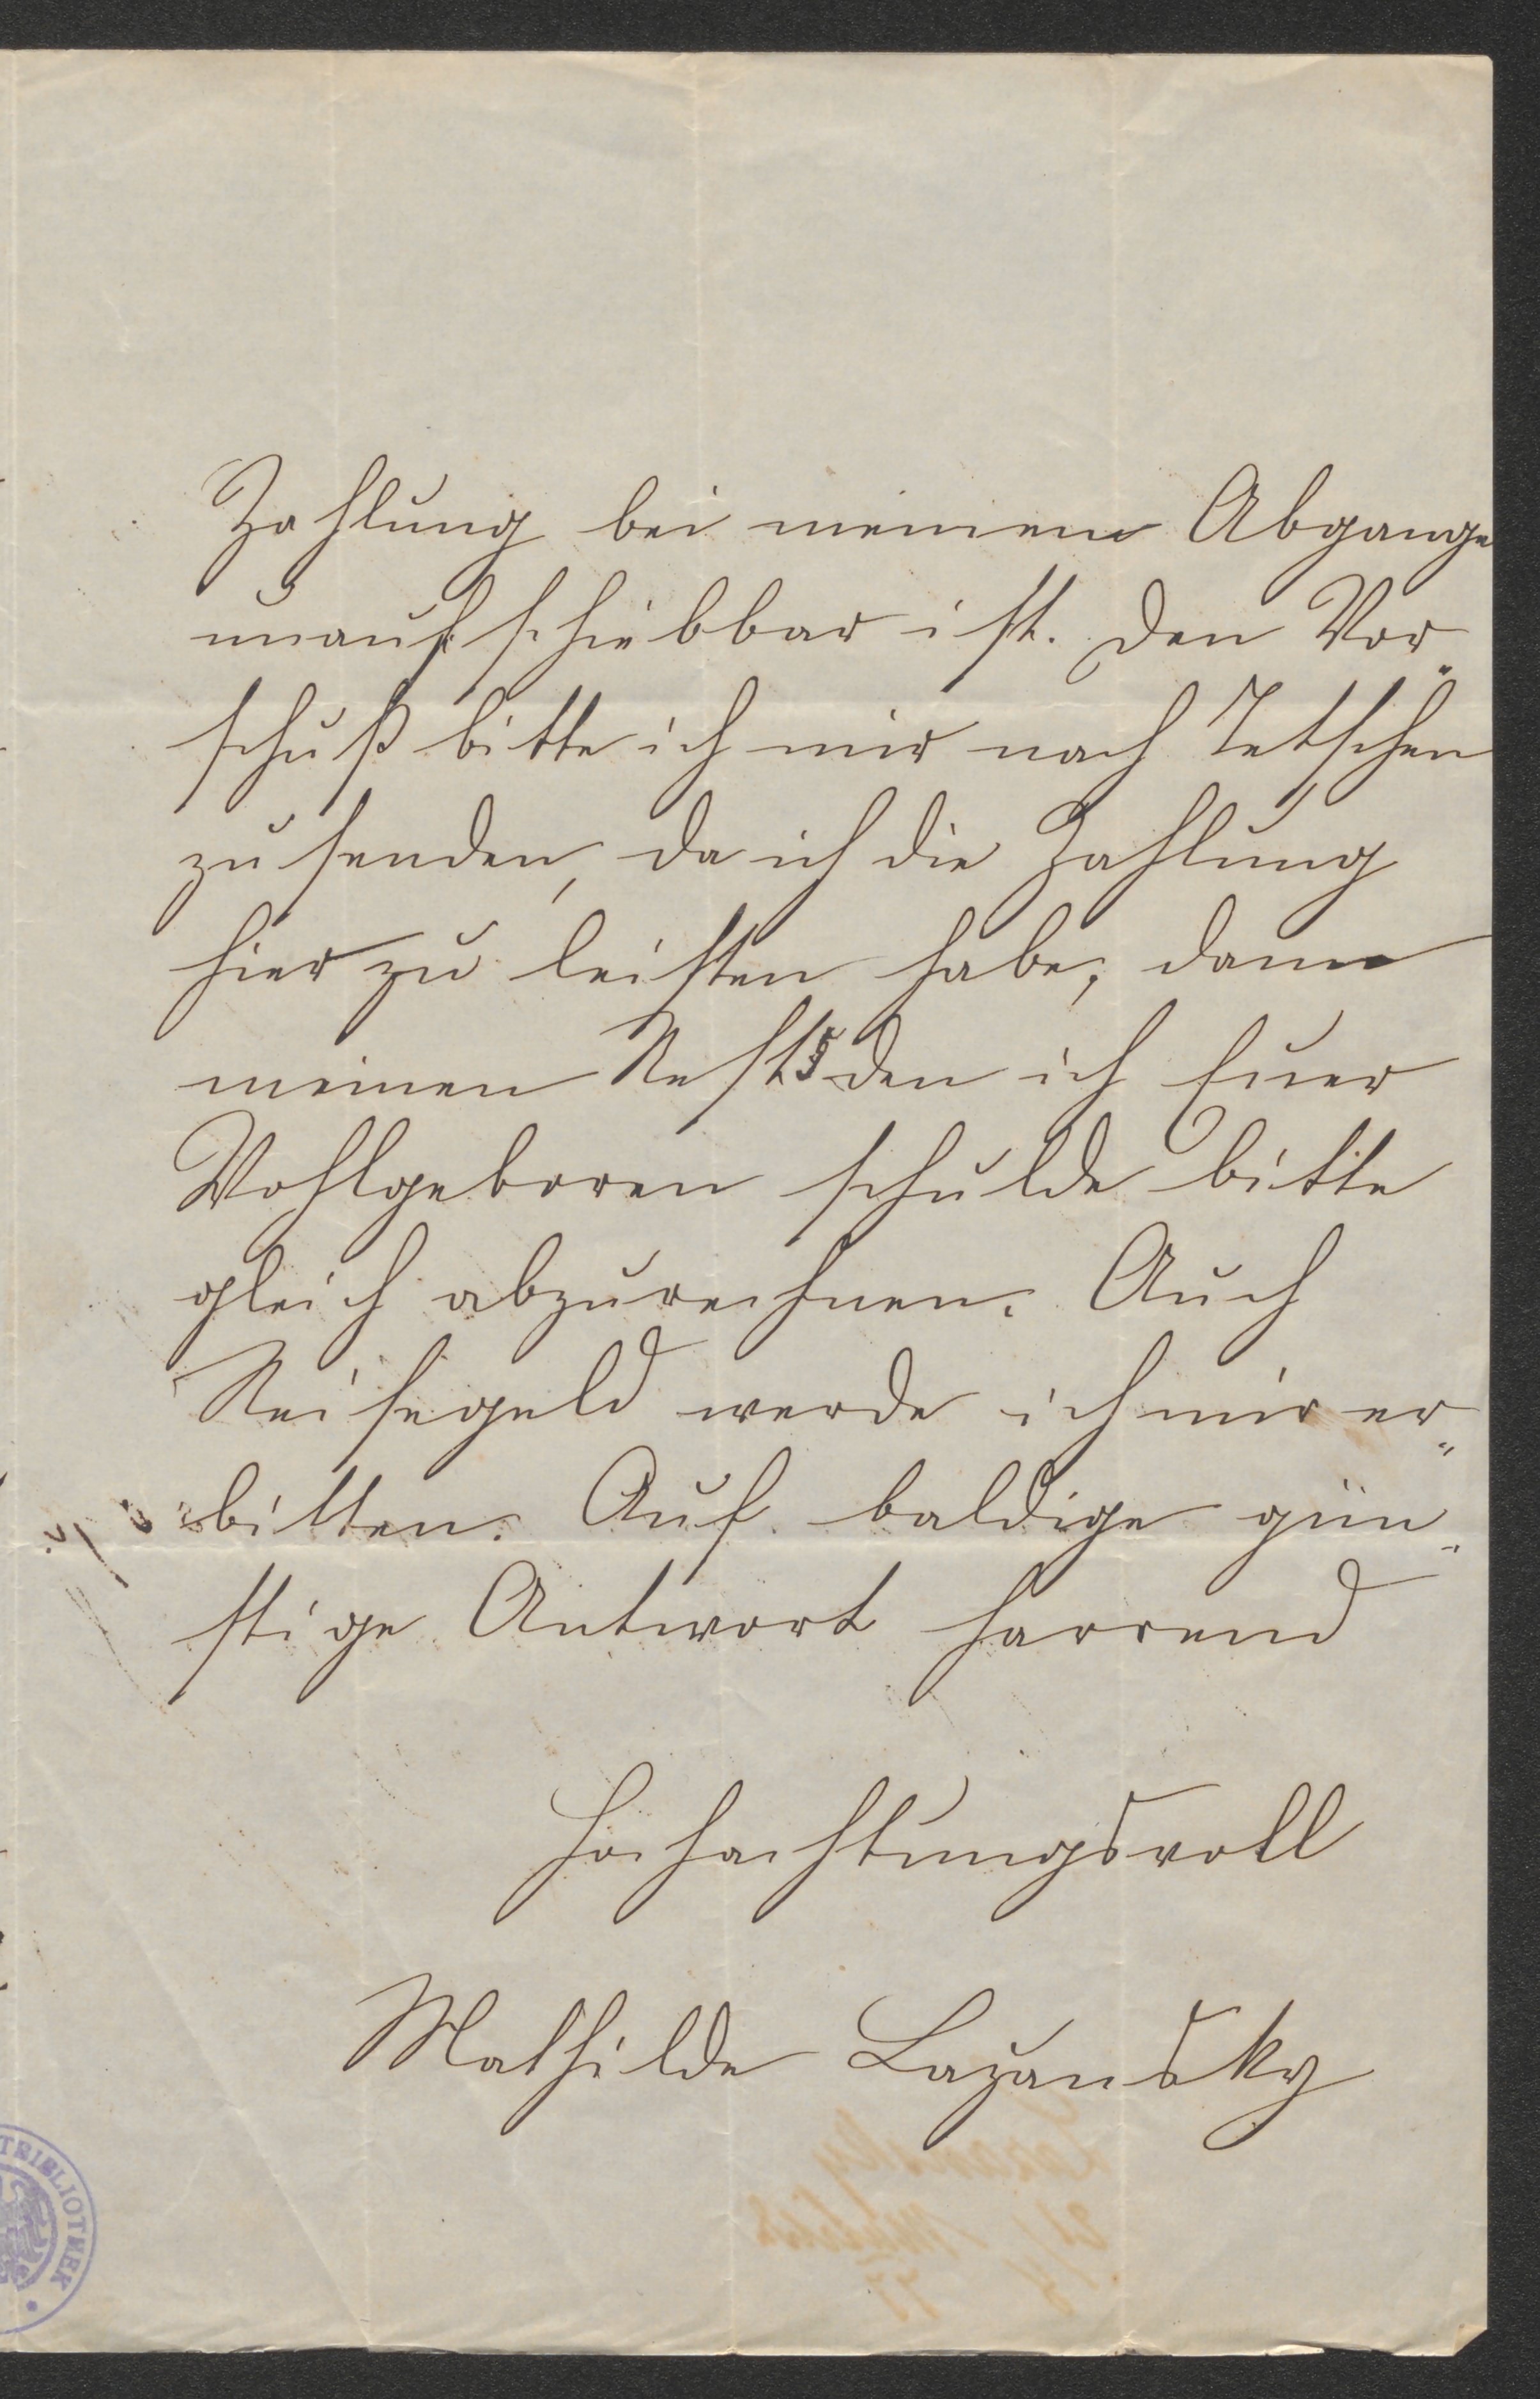 Zahlung bei meinem Abgange
unaufschiebbar ist. Den Vor„
schuß bitte ich mir nach Tetschen
zu senden, da ich die Zahlung
hier zu leisten habe; dann
meinen Rest den ich Euer
Wohlgeboren schulde bitte
gleich abzurechnen. Auch
Reisegeld werde ich mir er„
bitten. Auf baldige gün„
stige Antwort harrend
Hochachtungsvoll
Mathilde Lazansky